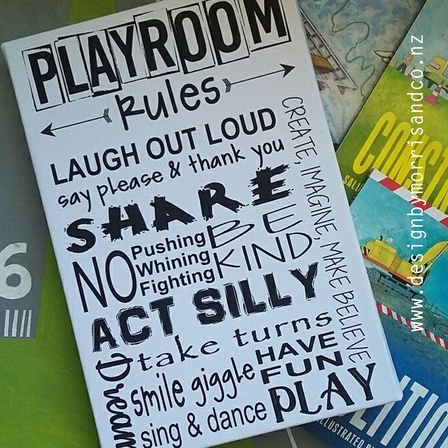 PLAYROOM
Rules
LAUGH OUT LOUD
say please & thank you
SHARE
BE
KIND
NO
Pushing
Whining
Fighting
CREATE, IMAGINE, MAKE BELIEVE
ACT SILLY
take turns
Dream
smile giggle
sing & dance
HAVE
FUN
PLAY
6
www.designbymorrisandco.nz